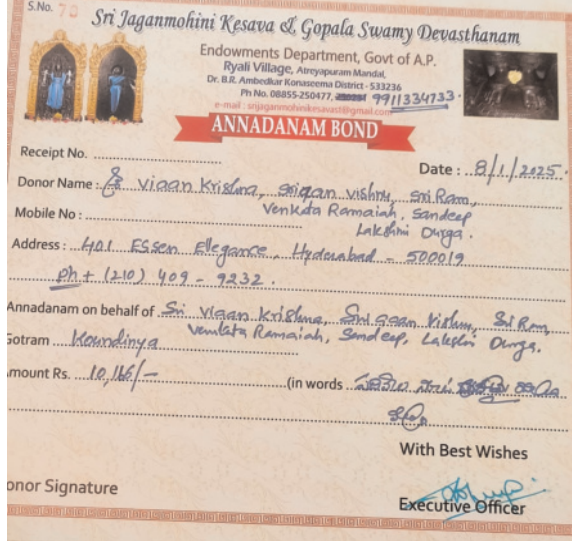 S.No. 70
Sri Jaganmohini Kesava & Gopala Swamy Devasthanam
Endowments Department, Govt of A.P.
Ryali Village, Atreyapuram Mandal,
Dr. B.R. Ambedkar Konaseema District - 533236
Ph No. 08855-250477, 9911334733.
e-mail : srijaganmohinikesavast@gmail.com
ANNADANAM BOND
Receipt No. ..............................
Date : 8/1/2025.
Donor Name : Viaan Krishna, vishnu, Sri Ram,
Mobile No : .............................. Venkata Ramaiah, Sandeep
Lakshmi Durga.
Address : 401 Essen Elegance, Hyderabad - 500019
Ph + (210) 409 - 9232.
Annadanam on behalf of Sri Viaan Krishna, Vishnu, Sri Ram,
Gotram Koundinya Venkata Ramaiah, Sandeep, Lakshmi Durga.
mount Rs. 10,116/- (in words
With Best Wishes
onor Signature
Executive Officer